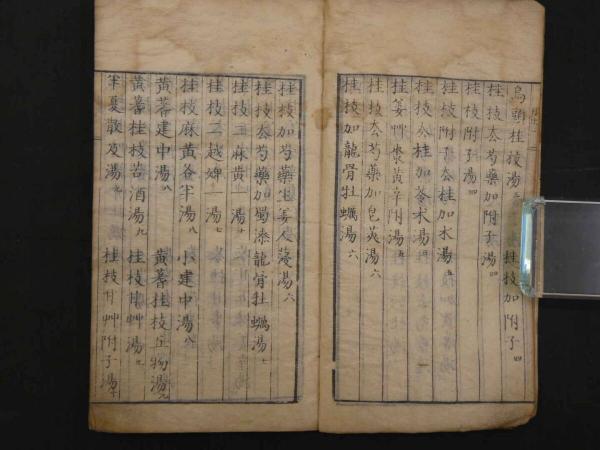 烏頭桂枝湯 桂枝加附子 四
桂枝去芍藥加附子湯 四
桂枝附子湯 四
桂枝附子去桂加朮湯 五
桂枝去桂加苓朮湯
桂姜艸棗黃辛附湯 五
桂枝去芍藥加皂莢湯 六
桂枝加龍骨牡蠣湯 六
桂枝加芍藥生姜人蓡湯 六
桂枝去芍藥加蜀漆龍骨牡蠣湯 七
桂枝二麻黃一湯 七
桂枝二越婢一湯 七
桂枝麻黃各半湯 八 小建中湯 八
黃蓍建中湯 八 黃蓍桂枝五物湯 九
黃蓍桂枝苦酒湯 九 桂枝甘艸湯 九
半夏散及湯 九 桂枝甘艸附子湯 十